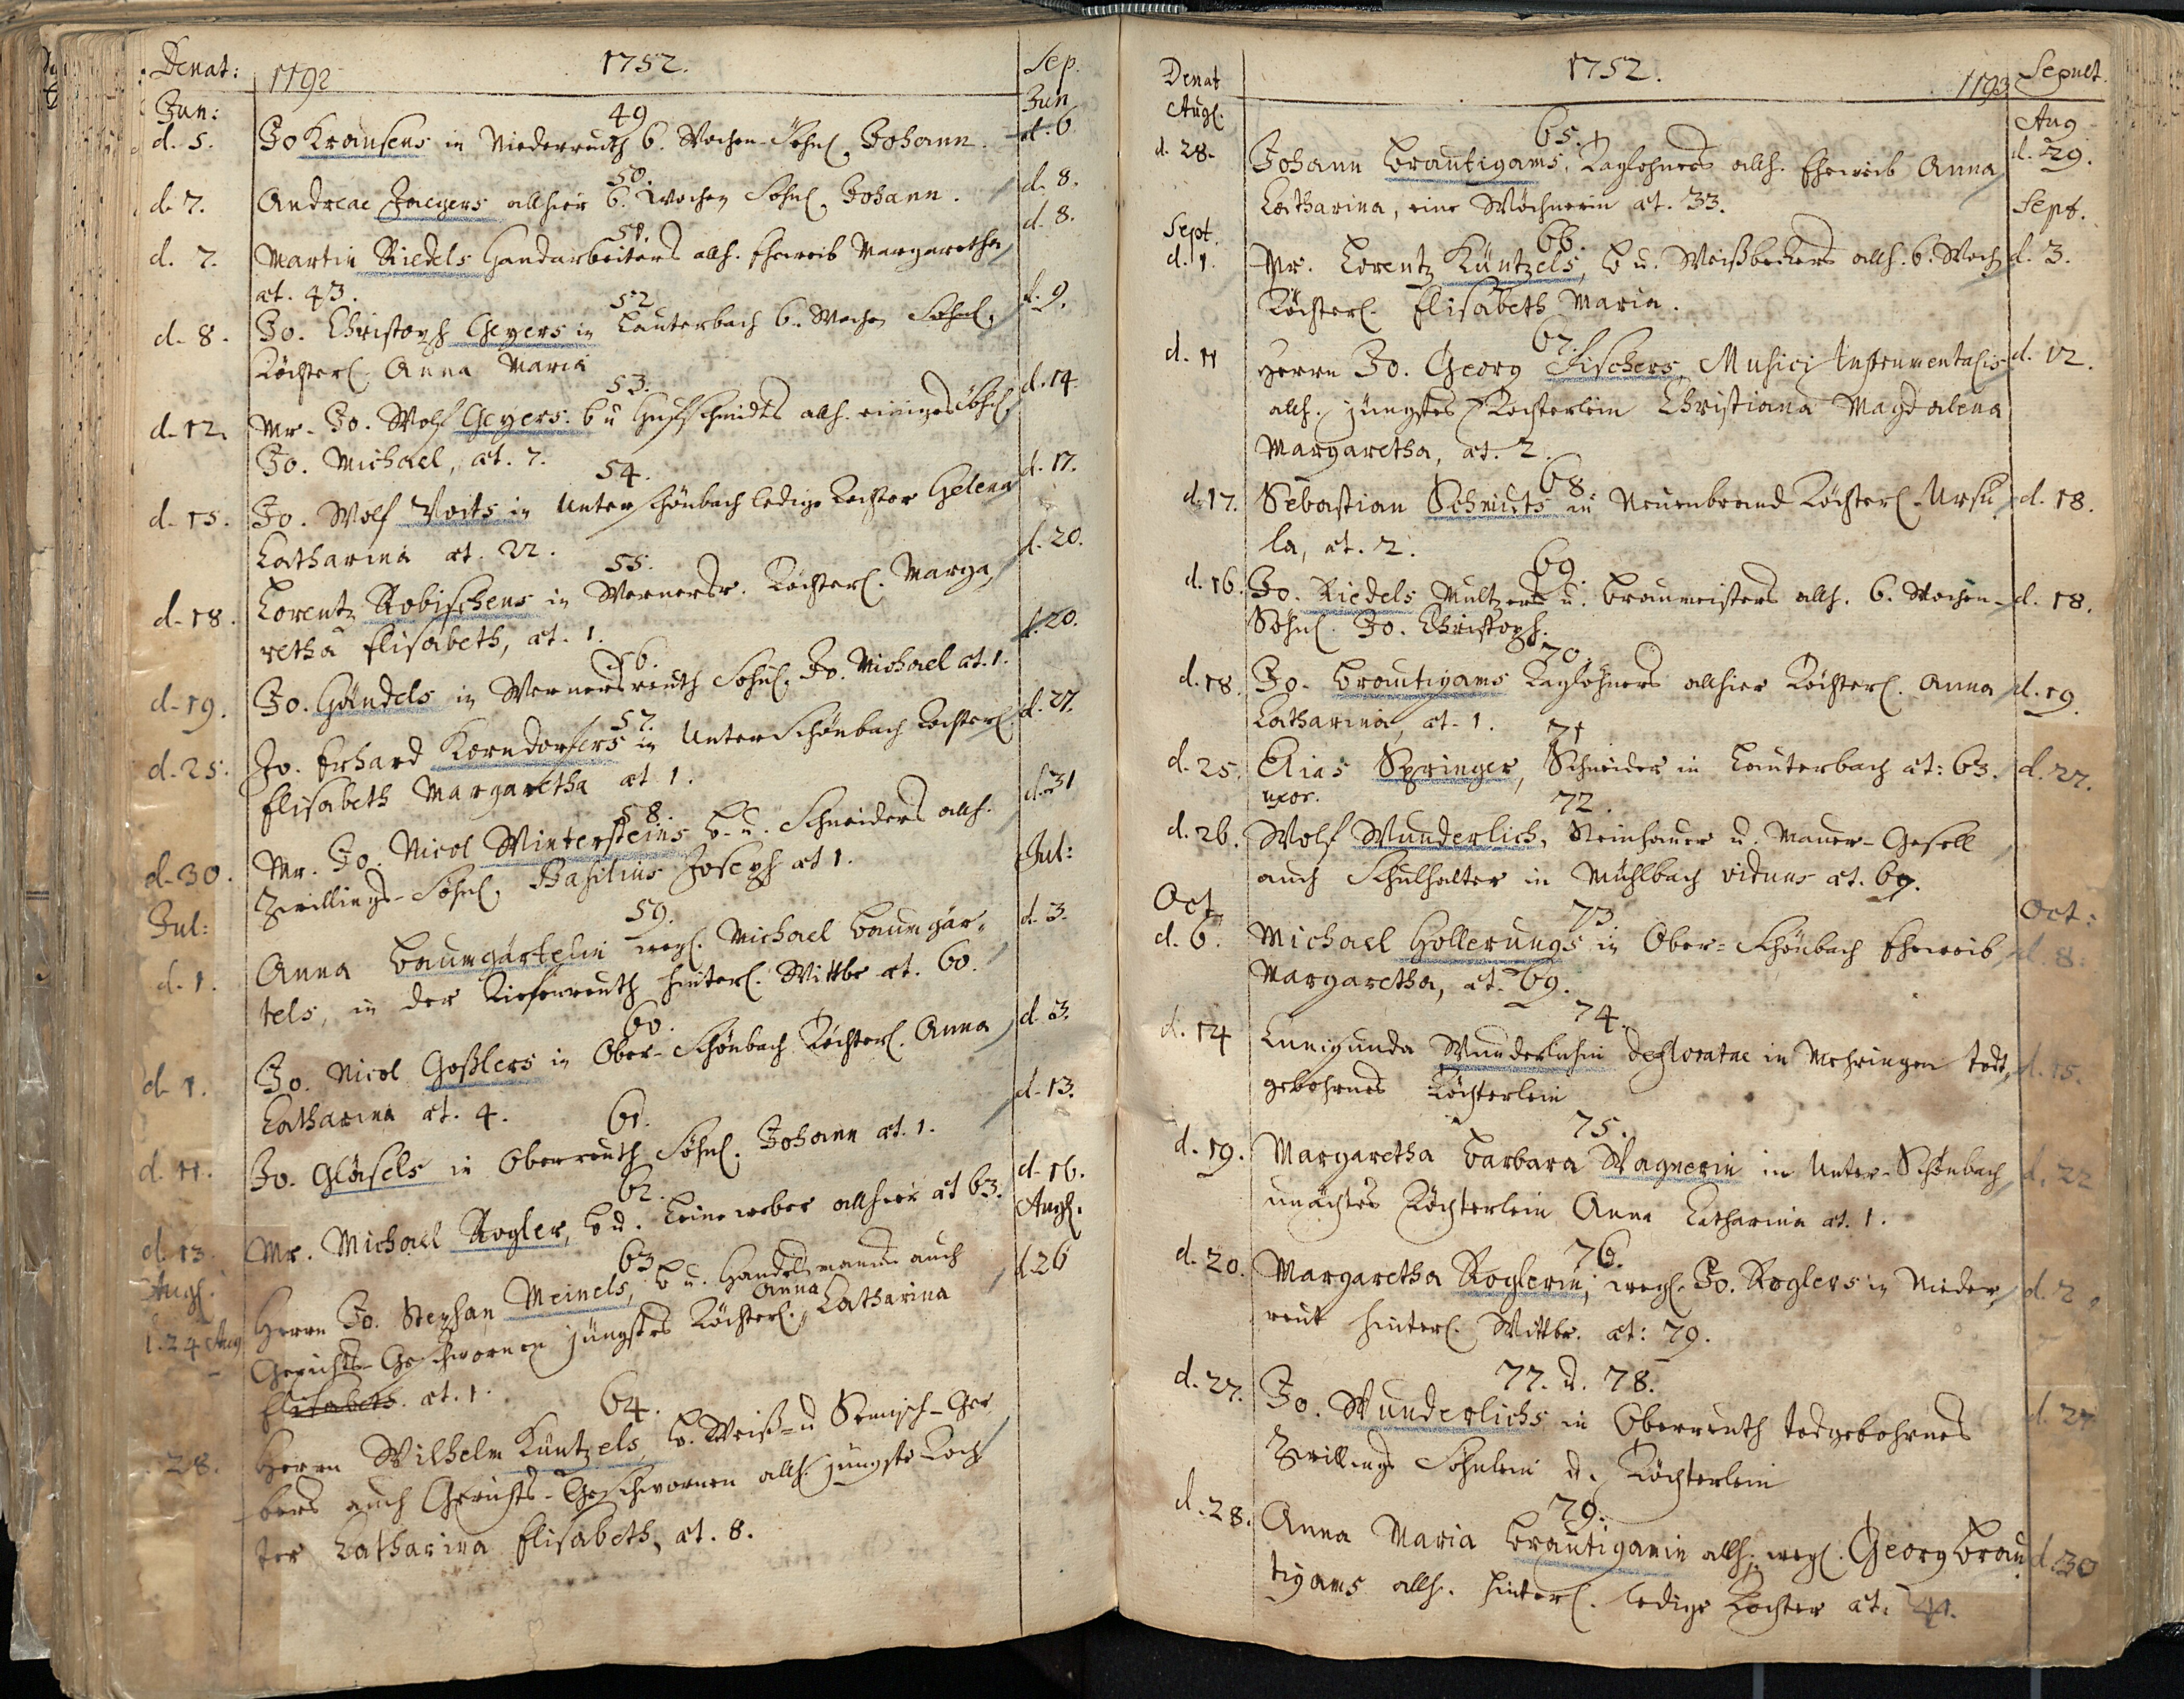 Denat: 1192 1752. Sep.
Jun: Jun
49
d. 5. Jo Krausens in Niederreuth 6. Wochen-Söhnl. Johann. d. 6
50.
d. 7. Andreae Jaegers allhier 6. Wochen Söhnl. Johann. d. 8.
51.
d. 7. Martin Riedels Handarbeiters allh. Eheweib Margaretha d. 8.
æt. 43.
52
d. 8. Jo. Christoph Geyers in Lauterbach 6. Wochen Söhnl. d. 9.
Töchterl. Anna Maria
53.
d. 12. Mr. Jo. Wolf Geyers. b u Hufschmidts allh. einiges Söhnl. d. 14.
Jo. Michael, æt. 7.
54.
d. 15. Jo. Wolf Voits in Unter Schönbach ledige Tochter Helena d. 17.
Catharina æt. 22.
55.
d. 18. Lorentz Robischens in Wernersr. Töchterl. Marga d. 20.
retha Elisabeth, æt. 1.
56.
d. 19. Jo. Händels in Wernersreuth Söhnl. Jo. Michael æt. 1. d. 20.
57.
d. 25. Jo. Erhard Korndorfers in Unter Schönbach Töchterl. d. 27.
Elisabeth Margaretha æt 1.
58.
d. 30. Mr. Jo. Nicol Wintersteins b. u. Schneiders allh. d. 31
Zwillings-Söhnl. Basilius Joseph æt 1.
Jul: Jul:
59.
d. 1. Anna Baumgärtelin weyl. Michael Baumgär- d. 3.
tels, in der Kiefenreuth hinterl. Wittbe æt. 60.
60.
d. 1. Jo. Nicol Goßlers in Ober-Schönbach Töchterl. Anna d. 3.
Catharina æt. 4.
61.
d. 11. Jo. Gläsels in Oberreuth Söhnl. Johann æt. 1. d. 13.
62.
d. 13. Mr. Michael Rogler, b u. Leineweber allhier æt 63. d. 16.
Augl. Augl.
63
d. 24 Aug Herrn Jo. Stephan Meinels, b u. Handelsmanns auch d. 26
Gerichts-Geschwornen jüngstes Töchterl. Anna Catharina
Elisabeth. æt. 1.
64.
28. Herrn Wilhelm Küntzels b. Weiß- u Semisch-Ger
bers auch Gerichts-Geschwornen allh. jüngste Toch
ter Catharina Elisabeth, æt. 8.
Denat 1752. 1193 Sepult.
Augl. Aug
65.
d. 28. Johann Bräutigams, Taglohners allh. Eheweib Anna d. 29.
Catharina, eine Wöchnerin æt. 33.
Sept. Sept.
66.
d. 1. Mr. Lorentz Küntzels, b u. Weißbeckers allh. 6. Woch d. 3.
Töchterl. Elisabeth Maria.
67.
d. 11 Herrn Jo. Georg Fischers, Musici Instrumentalis d. 12.
allh. jüngstes Töchterlein Christiana Magdalena
Margaretha, æt. 2.
68.
d. 17. Sebastian Schmidts in Neuenbrand Töchterl. Ursu d. 18.
la, æt. 2.
69.
d. 16. Jo. Riedels Multzers u. Braumeisters allh. 6. Wochen- d. 18.
Söhnl. Jo. Christoph.
70
d. 18. Jo. Bräutigams Taglöhners allhier Töchterl. Anna d. 19.
Catharina, æt. 1.
71
d. 25. Elias Springer, Schneider in Lauterbach æt: 63. d. 27.
uxor.
72.
d. 26. Wolf Wunderlich, Steinhauer u. Maurer-Gesell
auch Schulhalter in Mühlbach viduus æt. 69.
Oct Oct:
73
d. 6. Michael Hollerungs in Ober-Schönbach Eheweib d. 8.
Margaretha, æt. 69.
74.
d. 14 Cunigunda Wunderlichin defloratae in Mehringen todt d. 15.
gebohrnes Töchterlein
75.
d. 19. Margaretha Barbara Wagnerin in Unter-Schönbach d. 22
unächtes Töchterlein Anna Catharina æt. 1.
76.
d. 20. Margaretha Roglerin, weyl. Jo. Roglers in Nieder d. 2
reut hinterl. Wittbe. æt: 79.
77. u. 78.
d. 27. Jo. Wunderlichs in Oberreuth todgebohrnes d. 27
Zwillings Söhnlein u. Töchterlein
79.
d. 28. Anna Maria Bräutigamin allh. weyl. Georg Bräu d. 30
tigams allh. hinterl. ledige Tochter æt: 41.